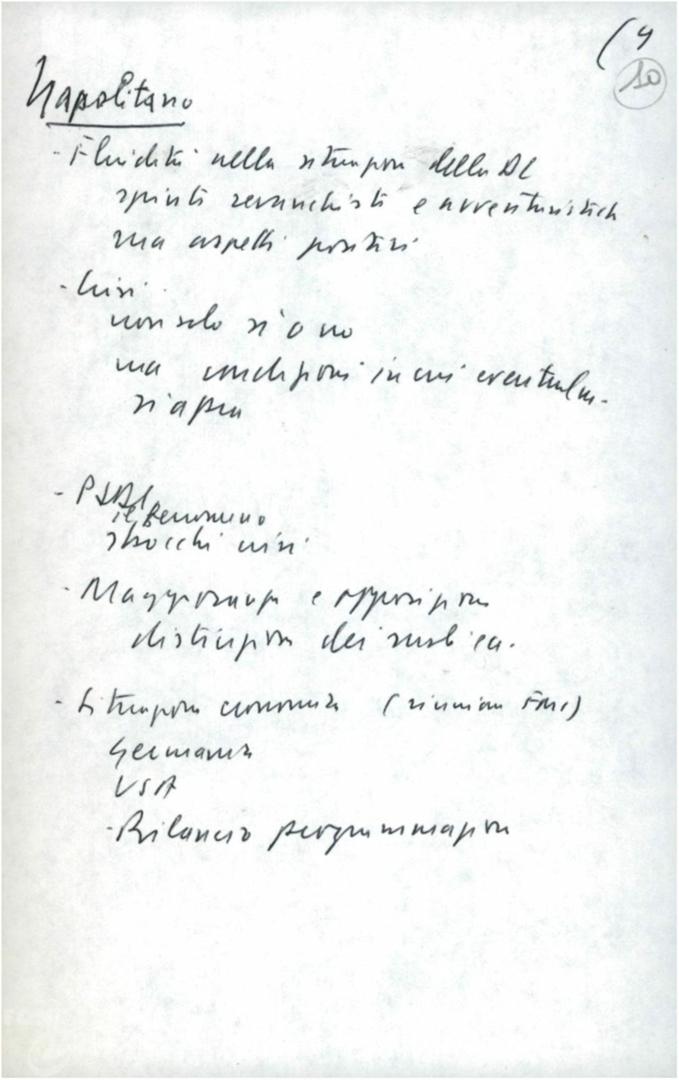 (4
10
Napolitano
- Fluidità nella situazione della DC
spinte revanchiste e avventuristiche
ma aspetti positivi
- Crisi
non solo si o no
ma condizioni in cui eventualm.
si apra
-
il fenomeno
sbocchi crisi
- Maggioranza e opposizione
distinzione dei ruoli ec.
- Situazione economica (riunione FMI)
Germania
USA
- Rilancio programmazione